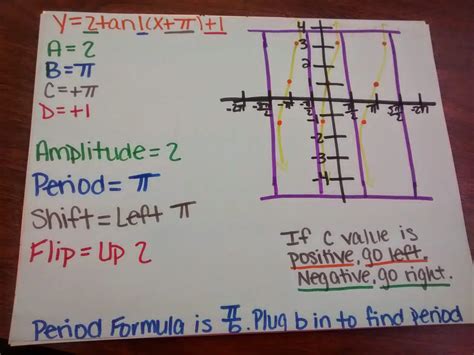 Y=2tan1(x+π)+1
A=2
B=π
C=+π
D=+1
Amplitude=2
Period=π
Shift=Left π
Flip=Up 2
4
3
2
-2π -3π/2 -π -π/2 π/2 π 3π/2 2π
-3
-4
If C value is
positive, go left.
Negative, go right.
Period Formula is π/b. Plug b in to find period